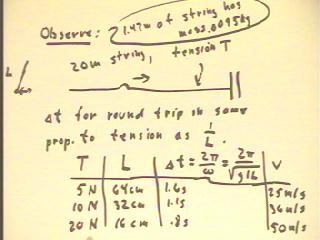 Observe: 1.47m of string has
mass .0095kg
20m string, tension T
L
Δt for round trip in same
prop. to tension as 1/L.
T L Δt = 2π/ω = 2π/√g/L V
5N 64cm 1.6s 25m/s
10N 32cm 1.1s 36m/s
20N 16cm .8s 50m/s